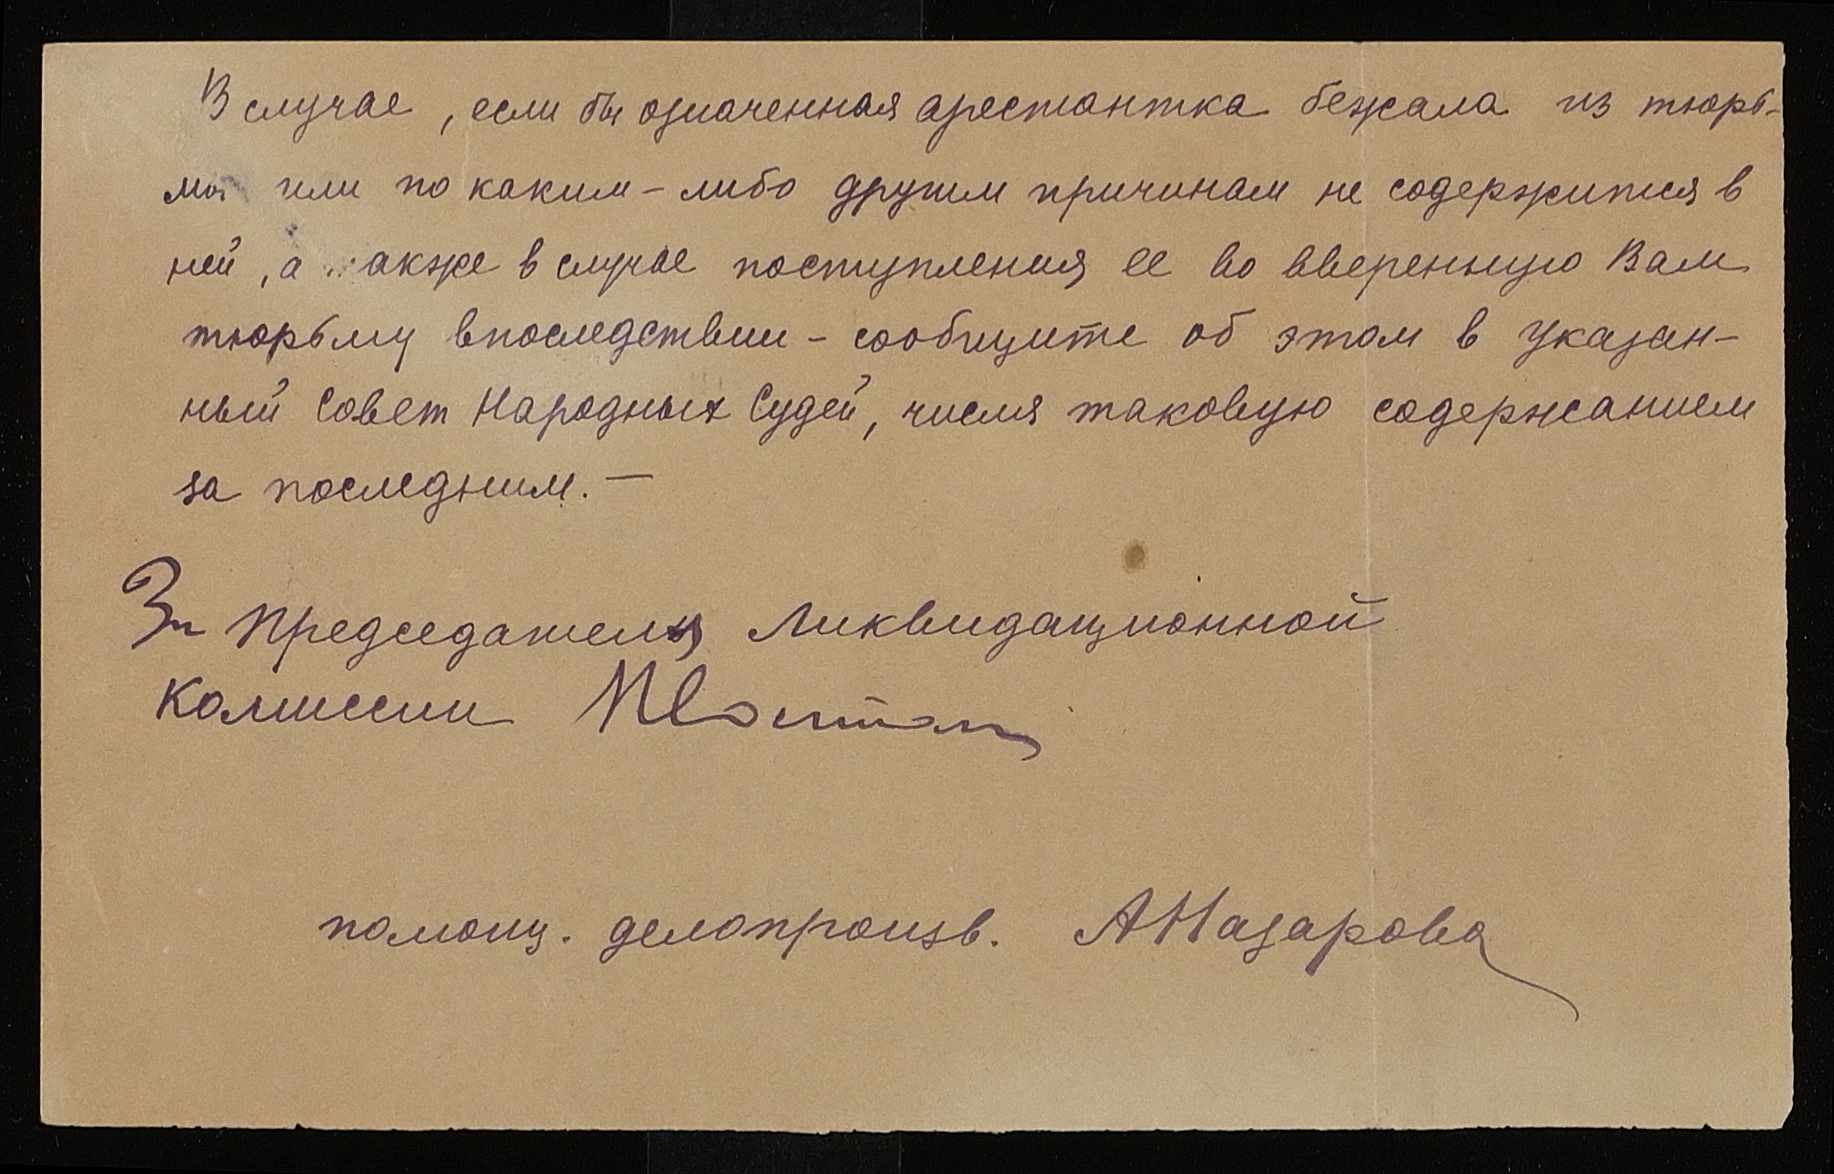 В случае, если бы означенная арестантка бежала из тюрь-
мы или по каким-либо другим причинам не содержится в
ней, а также в случае поступления ее во вверенную Вам
тюрьму впоследствии - сообщите об этом в указан-
ный Совет Народных Судей, числя таковую содержанием
за последним. —
За Председателя Ликвидационной
Комиссии
помощ. делопроизв. А Назарова